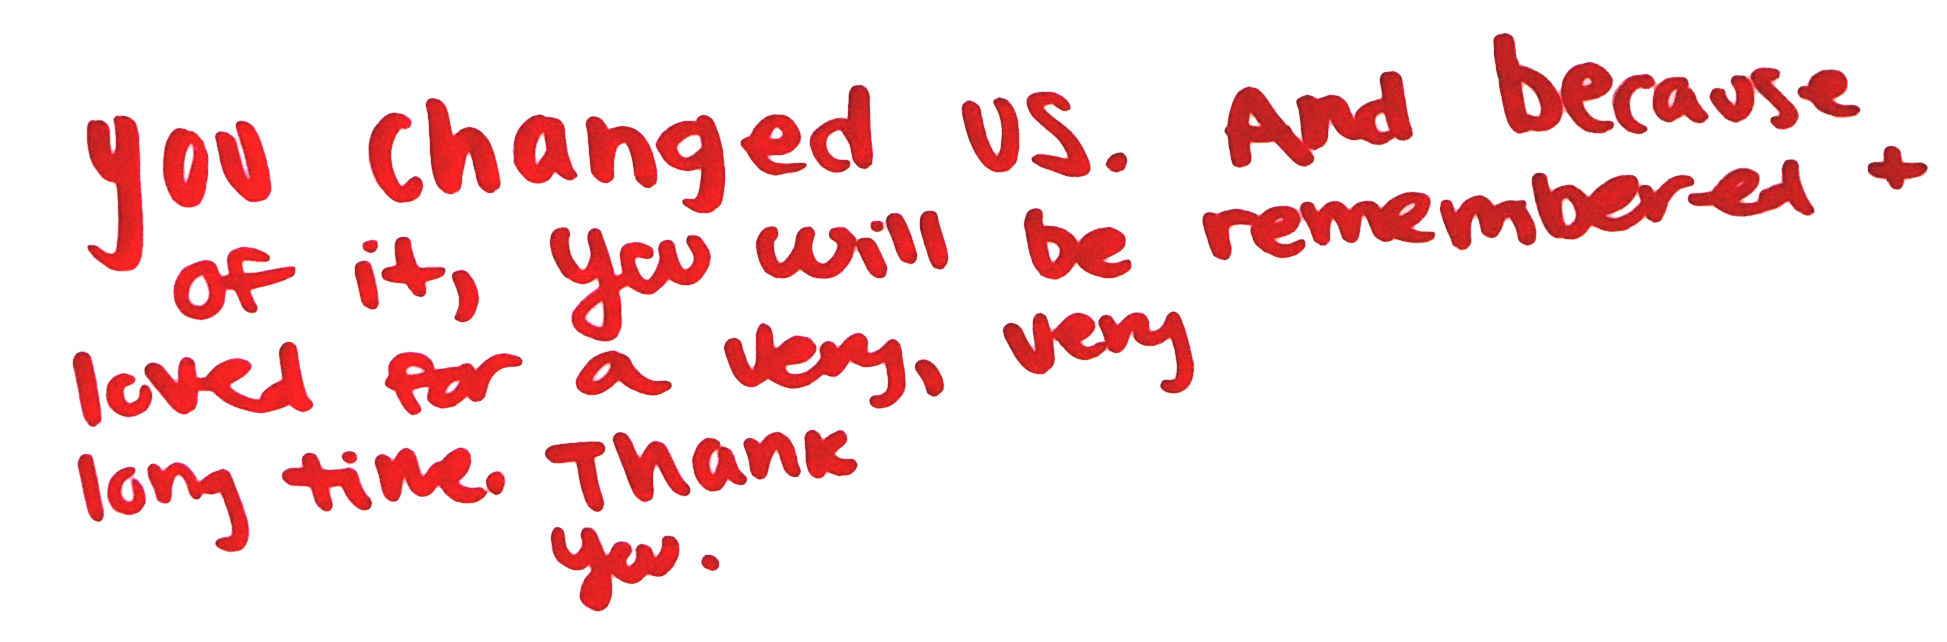 you changed us. And because
of it, you will be remembered +
loved for a very, very
long time. Thank
you.